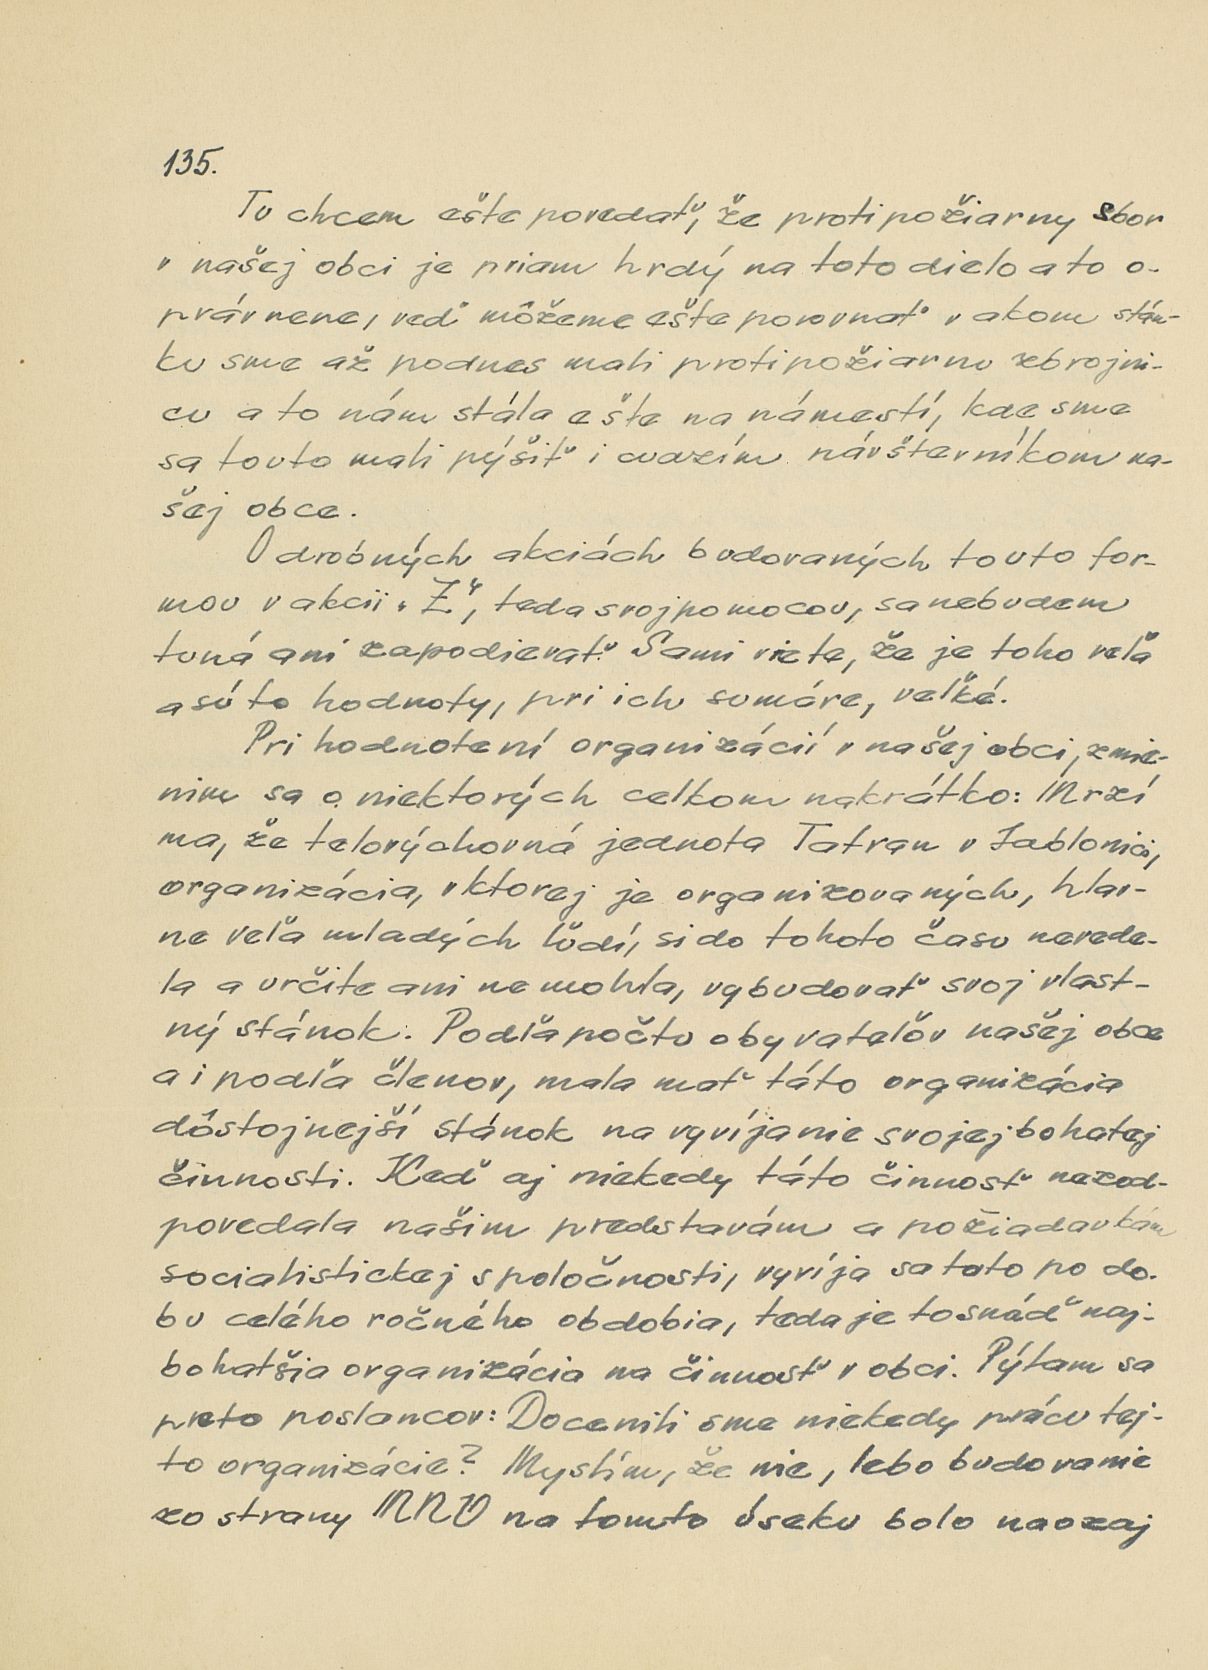 135.
Tu chcem ešte povedať, že protipožiarny sbor
v našej obci je priam hrdý na toto dielo a to o-
právnene, veď môžeme ešte porovnať v akom stán-
ku sme až podnes mali protipožiarnu zbrojni-
cu a to nám stála ešte na námestí, kde sme
sa touto mali pýšiť i cudzím návštevníkom na-
šej obce.
O drobných akciách budovaných touto for-
mou v akcii „Z“, teda svojpomocou, sa nebudem
tuná ani zapodievať. Sami viete, že je toho veľa
a sú to hodnoty, pri ich sumáre, veľké.
Pri hodnotení organizácií v našej obci, zmie-
nim sa o niektorých celkom nakrátko: Mrzí
ma, že telovýchovná jednota Tatran v Jablonici,
organizácia, v ktorej je organizovaných, hlav-
ne veľa mladých ľudí, si do tohoto času nevede-
la a určite ani nemohla, vybudovať svoj vlast-
ný stánok. Podľa počtu obyvateľov našej obce
a i podľa členov, mala mať táto organizácia
dôstojnejší stánok na vyvíjanie svojej bohatej
činnosti. Keď aj niekedy táto činnosť nezod-
povedala našim predstavám a požiadavkám
socialistickej spoločnosti, vyvíja sa tato po do-
bu celého ročného obdobia, teda je to snáď naj-
bohatšia organizácia na činnosť v obci. Pýtam sa
preto poslancov: Docenili sme niekedy prácu tej-
to organizácie? Myslím, že nie, lebo budovanie
zo strany MNV na tomto úseku bolo naozaj